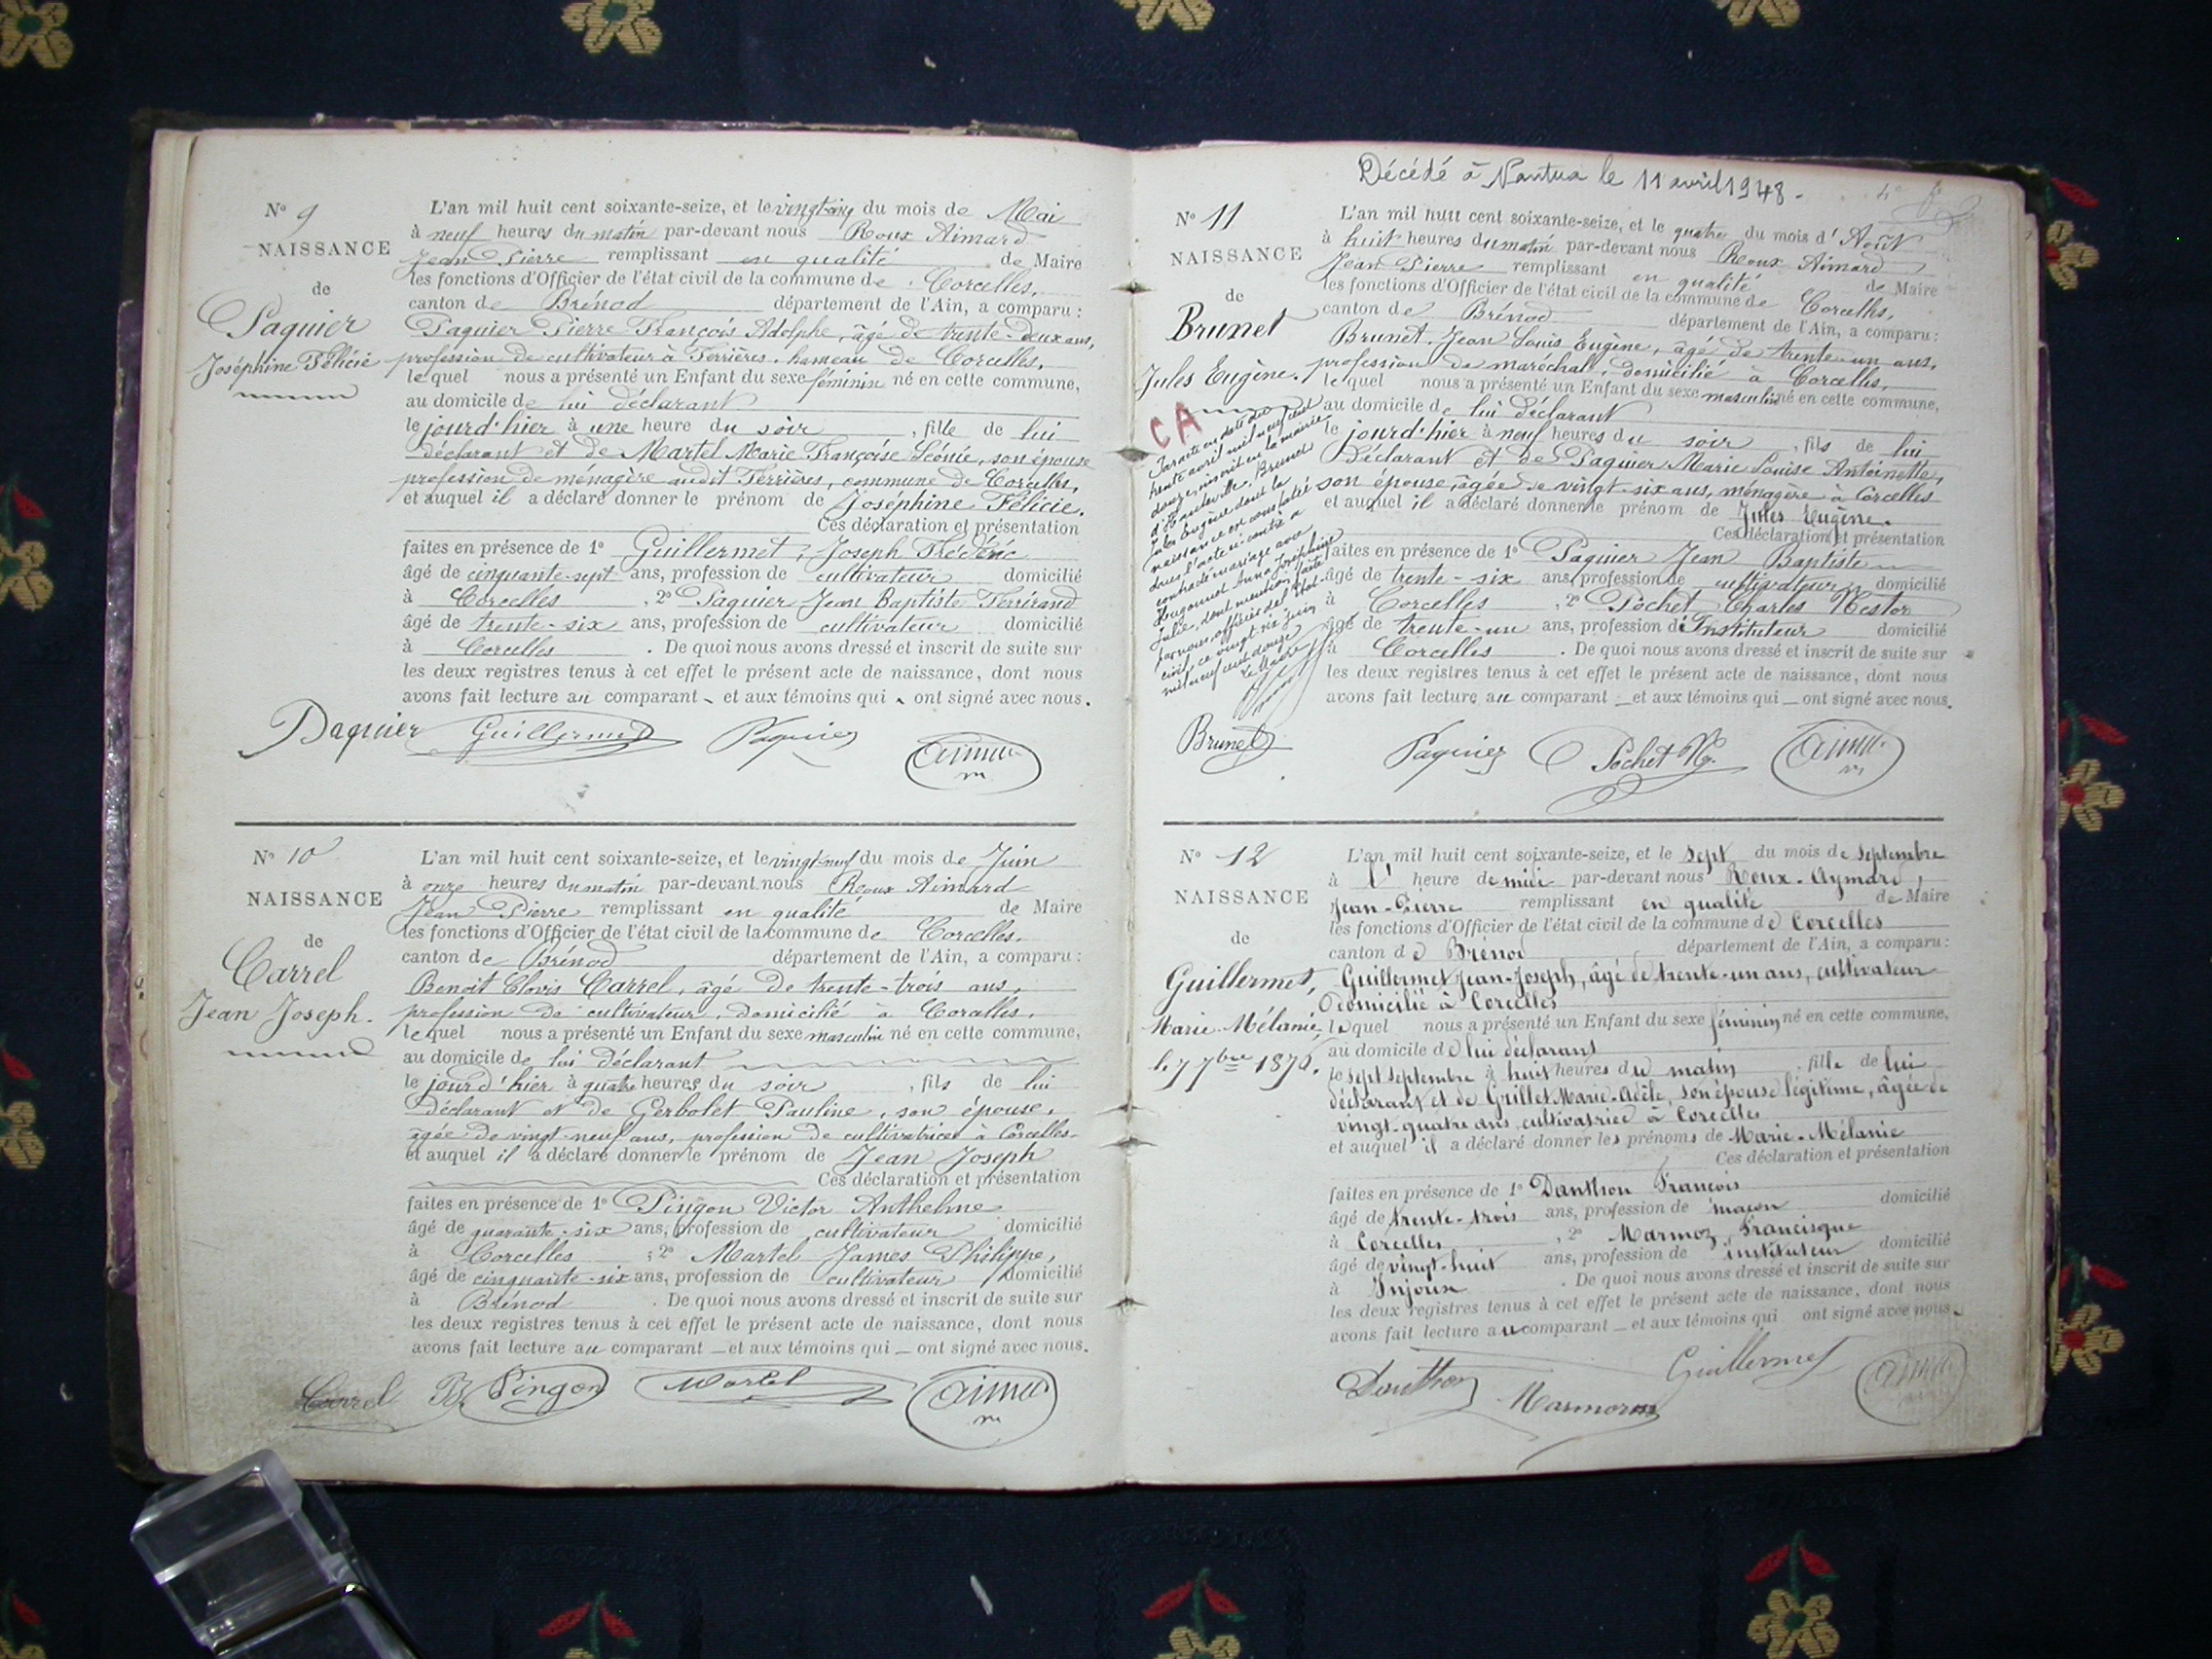 N° 9
NAISSANCE
de
Paquier
Joséphine Félicie
L'an mil huit cent soixante-seize, et le vingt-cinq du mois de Mai
à neuf heures du matin par-devant nous Roux Aimard
Jean Pierre remplissant en qualité de Maire
les fonctions d'Officier de l'état civil de la commune de Corcelles,
canton de Brénod département de l'Ain, a comparu:
Paquier Pierre François Adolphe, âgé de trente-deux ans,
profession de cultivateur à Ferrières, hameau de Corcelles,
lequel nous a présenté un Enfant du sexe féminin né en cette commune,
au domicile de lui déclarant
le jourd'hier à une heure du soir, fille de lui
déclarant et de Martel Marie Françoise Léonie, son épouse
profession de ménagère audit Ferrières, commune de Corcelles,
et auquel il a déclaré donner le prénom de Joséphine Félicie.
Ces déclaration et présentation
faites en présence de 1° Guillermet, Joseph Frédéric
âgé de cinquante-sept ans, profession de cultivateur domicilié
à Corcelles, 2° Paquier Jean Baptiste
âgé de trente-six ans, profession de cultivateur domicilié
à Corcelles. De quoi nous avons dressé et inscrit de suite sur
les deux registres tenus à cet effet le présent acte de naissance, dont nous
avons fait lecture au comparant et aux témoins qui ont signé avec nous.
Paquier Guillermet Paquier
N° 10
NAISSANCE
de
Carrel
Jean Joseph.
L'an mil huit cent soixante-seize, et le vingt-neuf du mois de Juin
à onze heures du matin par-devant nous Roux Aimard
Jean Pierre remplissant en qualité de Maire
les fonctions d'Officier de l'état civil de la commune de Corcelles,
canton de Brénod département de l'Ain, a comparu:
Benoit Clovis Carrel, âgé de trente-trois ans,
profession de cultivateur, domicilié à Corcelles,
lequel nous a présenté un Enfant du sexe masculin né en cette commune,
au domicile de lui déclarant
le jourd'hier à quatre heures du soir, fils de lui
déclarant et de Gerbolet Pauline, son épouse,
âgée de vingt-neuf ans, profession de cultivatrice à Corcelles
et auquel il a déclaré donner le prénom de Jean Joseph
Ces déclaration et présentation
faites en présence de 1° Pingon Victor Anthelme
âgé de quarante-six ans, profession de cultivateur domicilié
à Corcelles; 2° Martel James Philippe,
âgé de cinquante-six ans, profession de cultivateur domicilié
à Brénod. De quoi nous avons dressé et inscrit de suite sur
les deux registres tenus à cet effet le présent acte de naissance, dont nous
avons fait lecture au comparant et aux témoins qui ont signé avec nous.
Carrel Pingon Martel
Décédé à Nantua le 11 avril 1948.
N° 11
NAISSANCE
de
Brunet
Jules Eugène.
CA
Par acte en date du
trente avril mil neuf cent
douze, inscrit en la mairie
d'Hauteville, Brunet
Jules Eugène dont la
naissance est constatée
dans l'acte ci contre a
contracté mariage avec
Hugonnet Anna Joséphine
Julie, dont mention faite
par nous officier de l'état
civil, ce vingt six juin
mil neuf cent douze
Le Maire
L'an mil huit cent soixante-seize, et le quatre du mois d'Août
à huit heures du matin par-devant nous Roux Aimard
Jean Pierre remplissant en qualité de Maire
les fonctions d'Officier de l'état civil de la commune de Corcelles,
canton de Brénod département de l'Ain, a comparu:
Brunet Jean Louis Eugène, âgé de trente-un ans,
profession de maréchal, domicilié à Corcelles,
lequel nous a présenté un Enfant du sexe masculin né en cette commune,
au domicile de lui déclarant
le jourd'hier à neuf heures du soir, fils de lui
Déclarant et de Paquier Marie Louise Antoinette,
son épouse, âgée de vingt-six ans, ménagère à Corcelles
et auquel il a déclaré donner le prénom de Jules Eugène.
Ces déclaration et présentation
faites en présence de 1° Paquier Jean Baptiste
âgé de trente-six ans, profession de cultivateur domicilié
à Corcelles, 2° Pochet Charles Nestor
âgé de trente-un ans, profession d'Instituteur domicilié
à Corcelles. De quoi nous avons dressé et inscrit de suite sur
les deux registres tenus à cet effet le présent acte de naissance, dont nous
avons fait lecture au comparant et aux témoins qui ont signé avec nous.
Brunet Paquier Pochet N.
N° 12
NAISSANCE
de
Guillermet,
Marie-Mélanie,
le 7 7bre 1876.
L'an mil huit cent soixante-seize, et le sept du mois de septembre
à l' heure de midi par-devant nous Roux-Aymard,
Jean-Pierre remplissant en qualité de Maire
les fonctions d'Officier de l'état civil de la commune de Corcelles
canton de Brénod département de l'Ain, a comparu:
Guillermet Jean-Joseph, âgé de trente-un ans, cultivateur
domicilié à Corcelles
lequel nous a présenté un Enfant du sexe féminin né en cette commune,
au domicile de lui déclarant
le sept septembre à huit heures du matin, fille de lui
déclarant et de Grillet Marie-Adèle, son épouse légitime, âgée de
vingt-quatre ans, cultivatrice à Corcelles
et auquel il a déclaré donner les prénoms de Marie-Mélanie
Ces déclaration et présentation
faites en présence de 1° Danthon François
âgé de trente-trois ans, profession de maçon domicilié
à Corcelles, 2° Marmoz, Francisque
âgé de vingt-huit ans, profession de instituteur domicilié
à Injoux. De quoi nous avons dressé et inscrit de suite sur
les deux registres tenus à cet effet le présent acte de naissance, dont nous
avons fait lecture au comparant et aux témoins qui ont signé avec nous.
Danthon Marmoz Guillermet